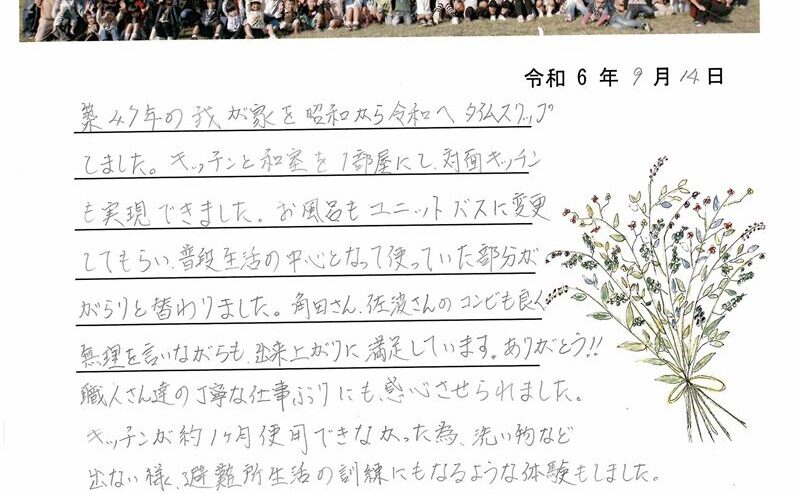 令和 6 年 9 月 14 日
築47年の我が家を昭和から令和へタイムスリップ
しました。キッチンと和室を1部屋にして、対面キッチン
も実現できました。お風呂もユニットバスに変更
してもらい、普段生活の中心となって使っていた部分が
がらりと替わりました。角田さん、佐波さんのコンビも良く
無理を言いながらも、出来上がりに満足しています。ありがとう!!
職人さん達の丁寧な仕事ぶりにも、感心させられました。
キッチンが約1ヶ月使用できなかった為、洗い物など
出ない様、避難所生活の訓練にもなるような体験もしました。